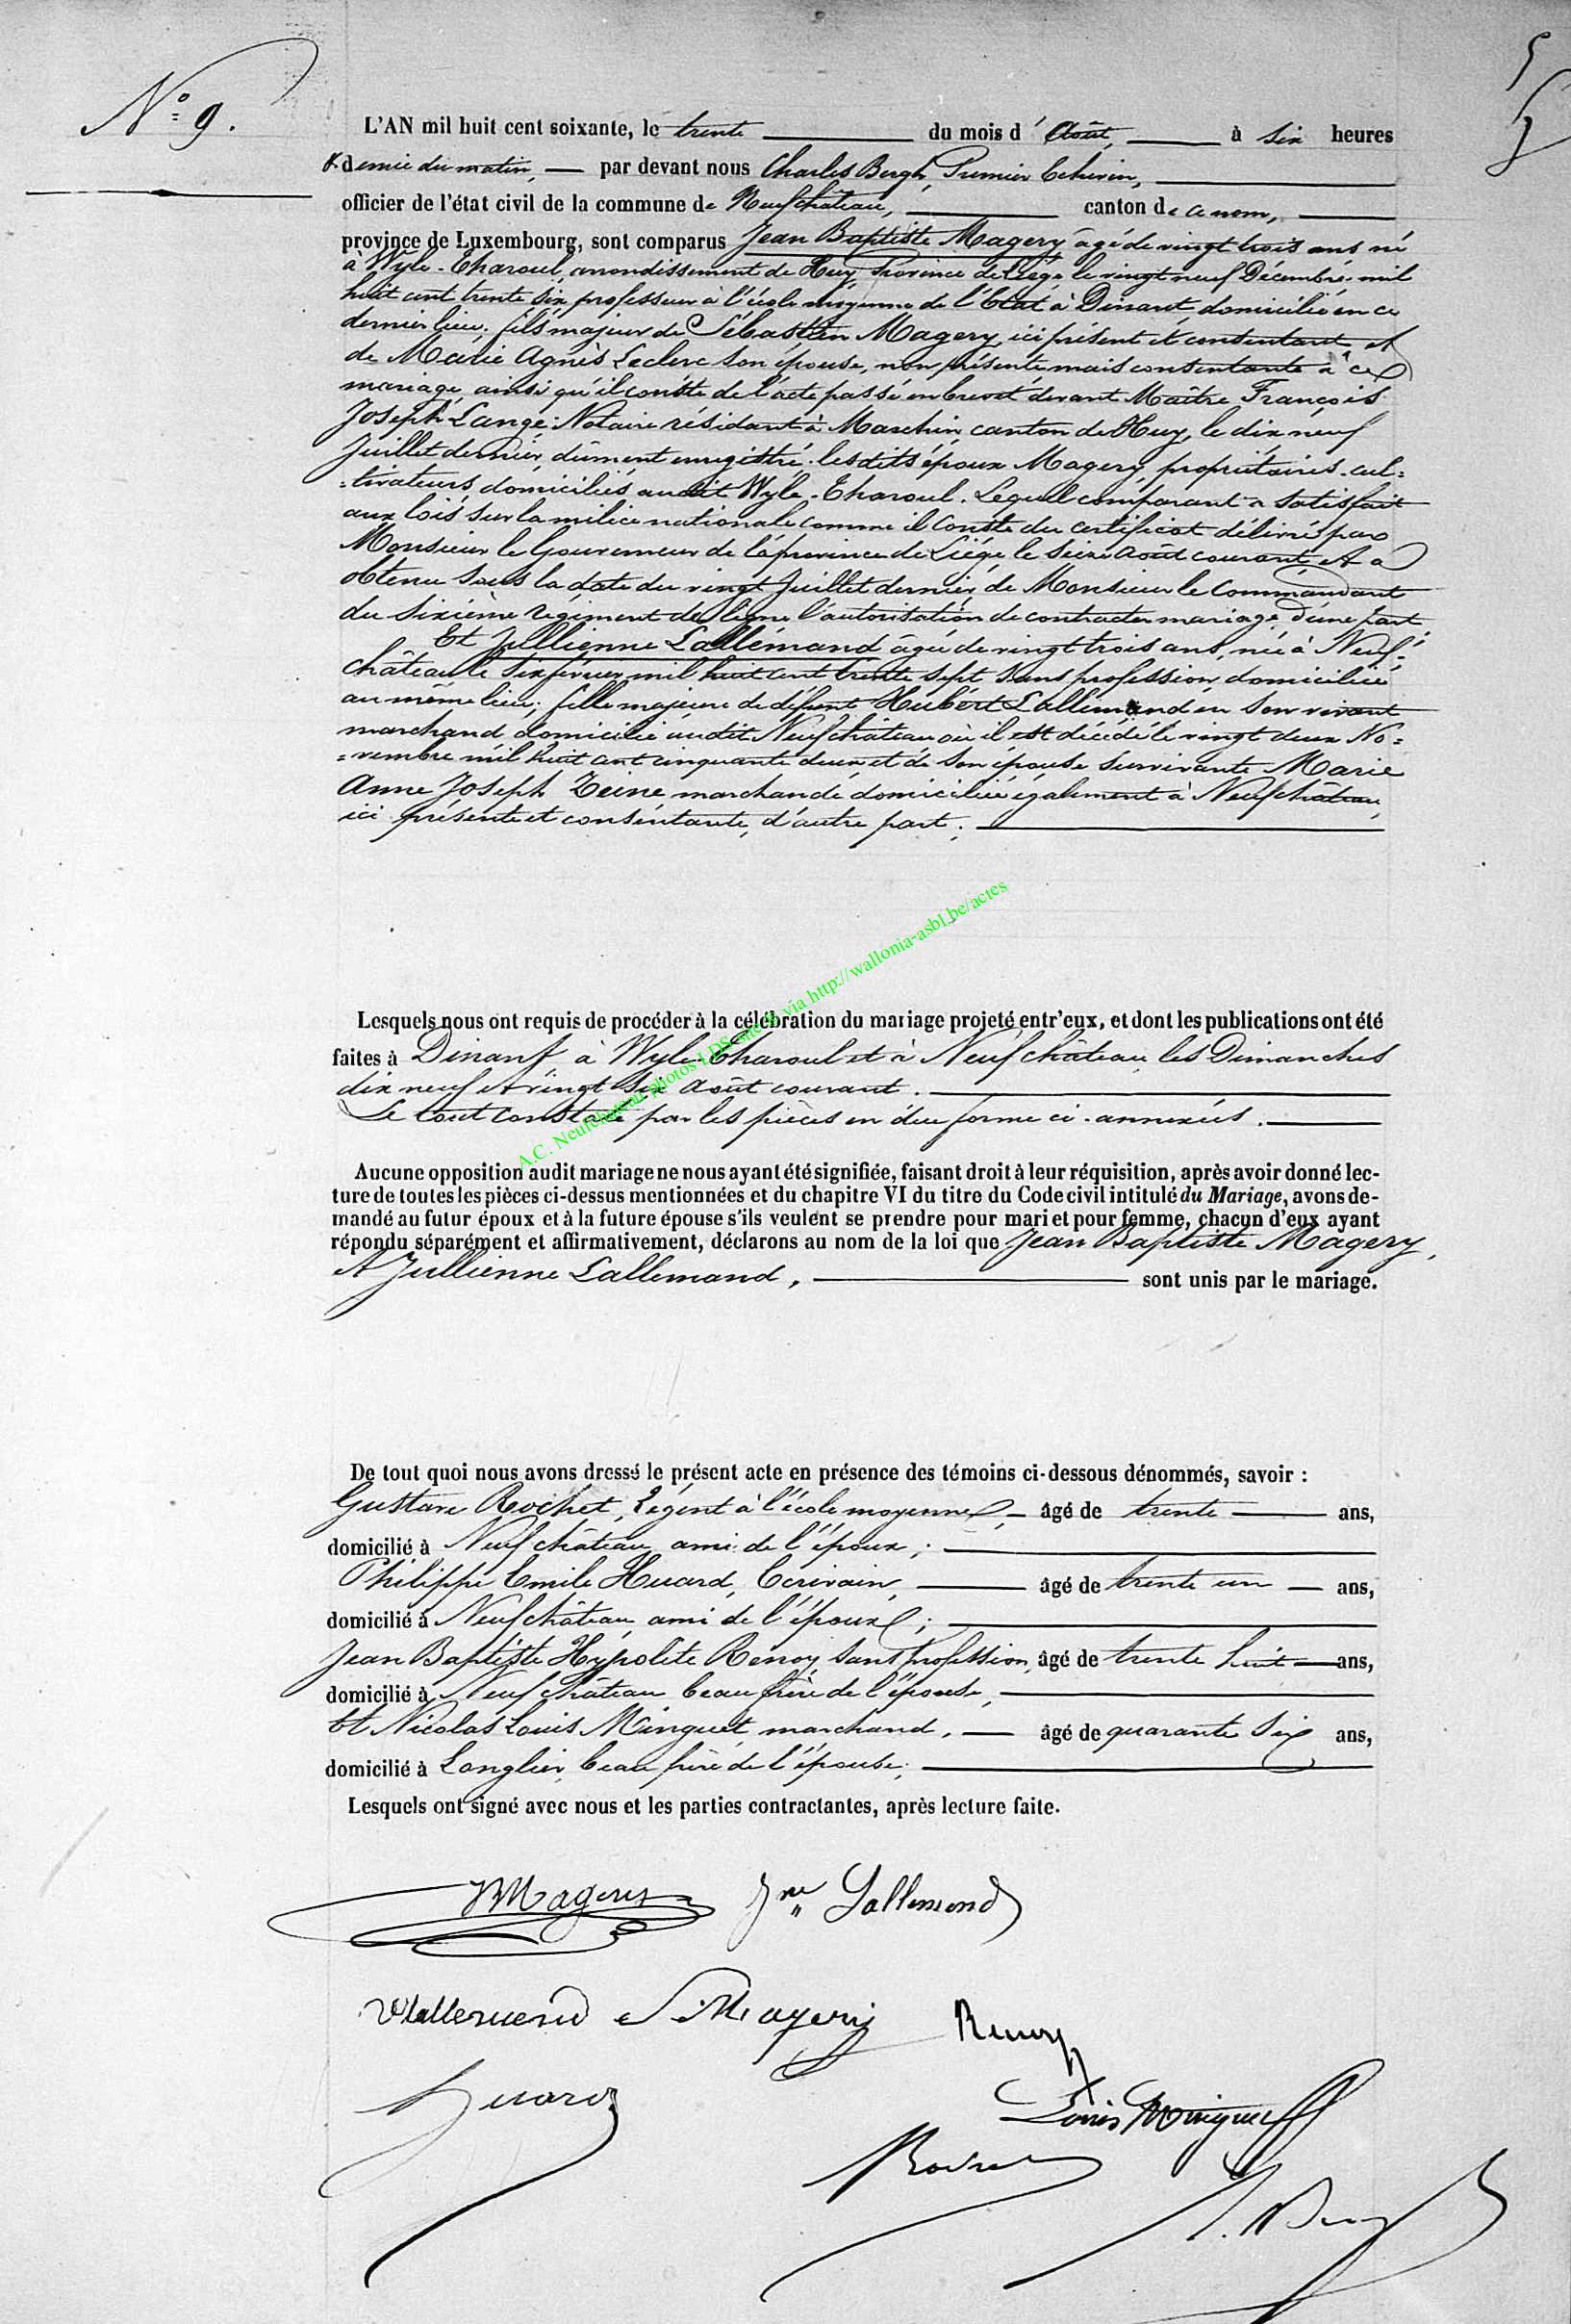 N° 9.
L'AN mil huit cent soixante, le trente du mois d' Août, à six heures
& demie du matin, par devant nous Charles Bergh, Premier Echevin,
officier de l'état civil de la commune de Neufchâteau, canton de ce nom,
province de Luxembourg, sont comparus Jean Baptiste Magery âgé de vingt trois ans né
à Wyle-Tharoul, arrondissement de Huy, Province de Liége le vingt neuf Décembre mil
huit cent trente six professeur à l'école moyenne de l'Etat à Dinant domicilié en ce
dernier lieu. fils majeur de Sébastien Magery, ici présent et consentant et
de Marie Agnès Leclerc son épouse, non présente mais consentante à ce
mariage, ainsi qu'il conste de l'acte passé en brevet devant Maître François
Joseph Lange Notaire résidant à Marchin, canton de Huy, le dix neuf
Juillet dernier, dûment enregistré. lesdits époux Magery, propriétaires-cul=
=tivateurs domiciliés audit Wyle-Tharoul. Lequel comparant a satisfait
aux lois sur la milice nationale comme il conste du certificat délivré par
Monsieur le Gouverneur de la province de Liége, le seize août courant, et a
obtenu sous la date du vingt Juillet dernier, de Monsieur le Commandant
du sixième régiment de ligne l'autorisation de contracter mariage, d'une part.
Et Jullienne Lallemand âgée de vingt trois ans, née à Neuf-
château le six février mil huit cent trente sept sans profession domiciliée
au même lieu; fille majeure de défunt Hubert Lallemand en son vivant
marchand domicilié audit Neufchâteau où il est décédé le vingt deux No=
=vembre mil huit cent cinquante deux et de son épouse survivante Marie
Anne Joseph marchande domiciliée également à Neufchâteau,
ici présente et consentante, d'autre part.
Lesquels nous ont requis de procéder à la célébration du mariage projeté entr'eux, et dont les publications ont été
faites à Dinant, à Wyle-Tharoul et à Neufchâteau les Dimanches
dix neuf et vingt six août courant.
Le tout constaté par les pièces en due forme ci-annexées.
A.C. Neufchâteau photos LDS via http://wallonia-asbl.be/actes
Aucune opposition audit mariage ne nous ayant été signifiée, faisant droit à leur réquisition, après avoir donné lec-
ture de toutes les pièces ci-dessus mentionnées et du chapitre VI du titre du Code civil intitulé du Mariage, avons de-
mandé au futur époux et à la future épouse s'ils veulent se prendre pour mari et pour femme, chacun d'eux ayant
répondu séparément et affirmativement, déclarons au nom de la loi que Jean Baptiste Magery,
et Jullienne Lallemand, sont unis par le mariage.
De tout quoi nous avons dressé le présent acte en présence des témoins ci-dessous dénommés, savoir :
Gustave Rochet, Régent à l'école moyenne, âgé de trente ans,
domicilié à Neufchâteau, ami de l'époux;
Philippe Emile Huard, Ecrivain, âgé de trente un ans,
domicilié à Neufchâteau, ami de l'époux;
Jean Baptiste Hypolite Renoy, sans profession, âgé de trente huit ans,
domicilié à Neufchâteau beau frère de l'épouse,
Et Nicolas Louis Minguet, marchand, âgé de quarante six ans,
domicilié à Longlier, beau frère de l'épouse;
Lesquels ont signé avec nous et les parties contractantes, après lecture faite.
JBMagery Jne Lallemand
Lallemand S. Magery Renoy
Huard Louis Minguet
Rochet